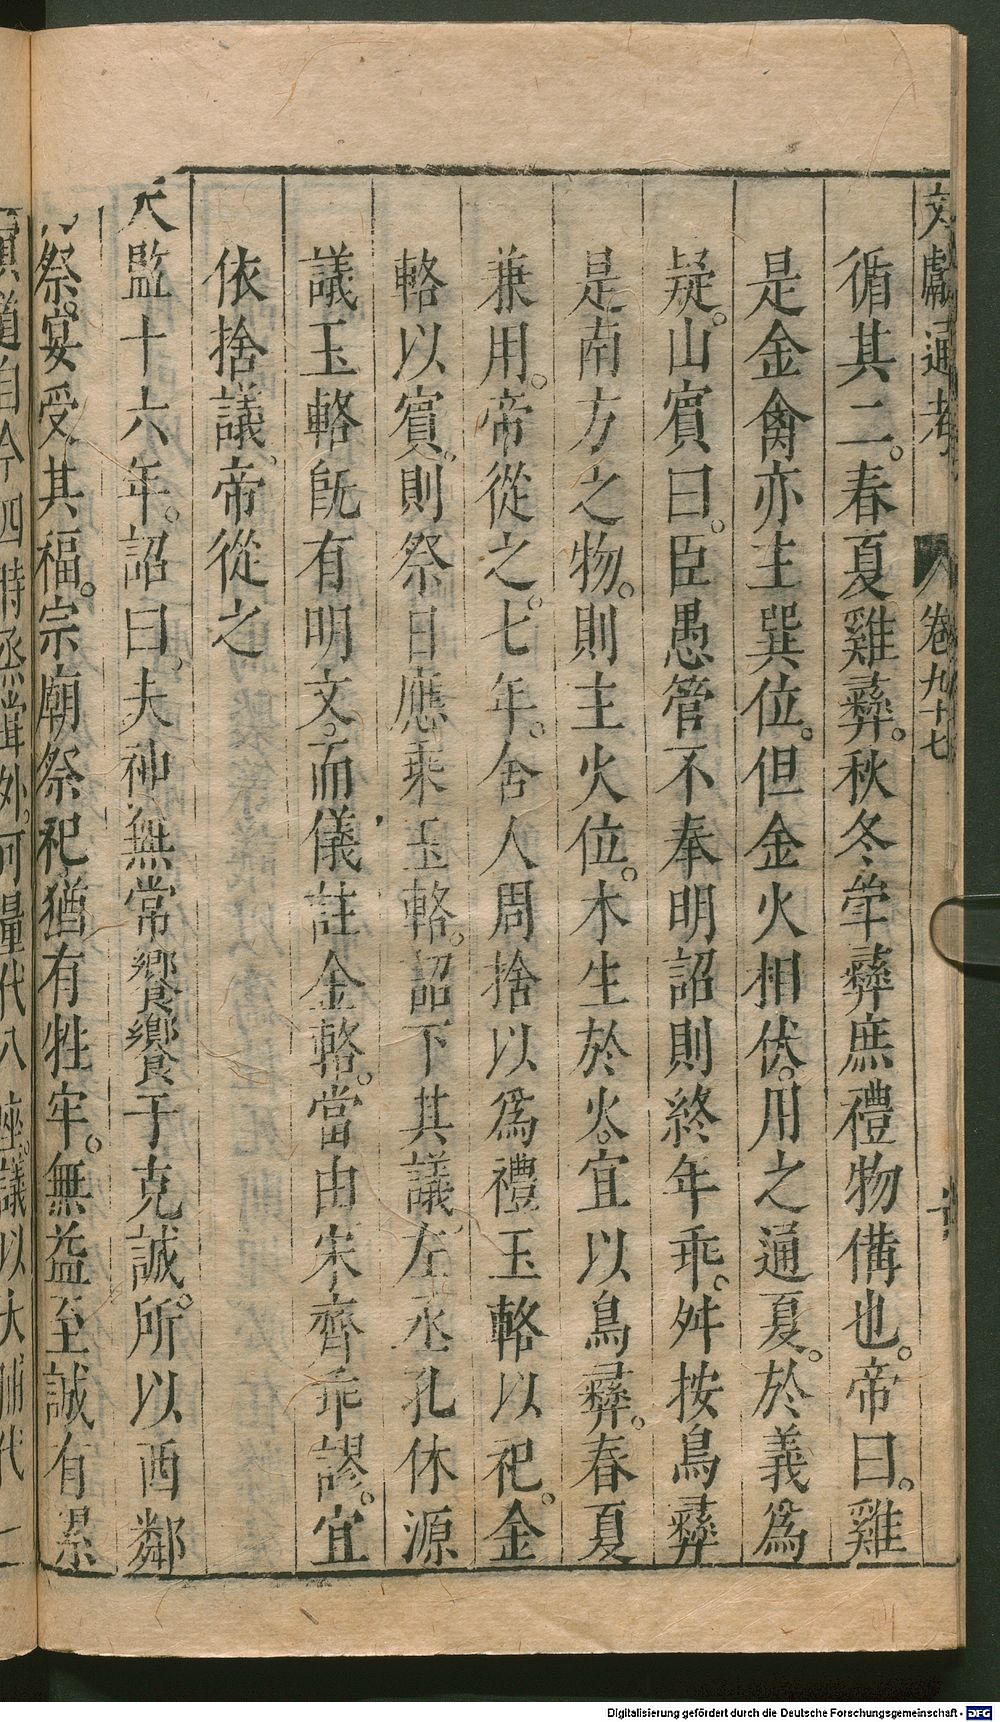 文獻通考 卷九十七
循其二。春夏雞彝。秋冬斝彝庶禮物備也。帝曰。雞
是金禽亦主巽位。但金火相伏。用之通夏。於義爲
疑。山賓曰。臣愚管不奉明詔則終年乖。舛按鳥彝
是南方之物。則主火位。木生於火。宜以鳥彝。春夏
兼用。帝從之。七年。舍人周捨以爲禮玉輅以祀。金
輅以賓。則祭日應乘玉輅。詔下其議。左丞孔休源
議玉輅旣有明文。而儀註金輅。當由宋齊乖謬。宜
依捨議。帝從之
天監十六年。詔曰。夫神無常饗饗于克誠。所以酉鄰
祭。宴受其福。宗廟祭祀猶有牲牢。無益至誠有累
道自今四時烝嘗外。可量代八座。議以大脯代
Digitalisierung gefördert durch die Deutsche Forschungsgemeinschaft - DFG